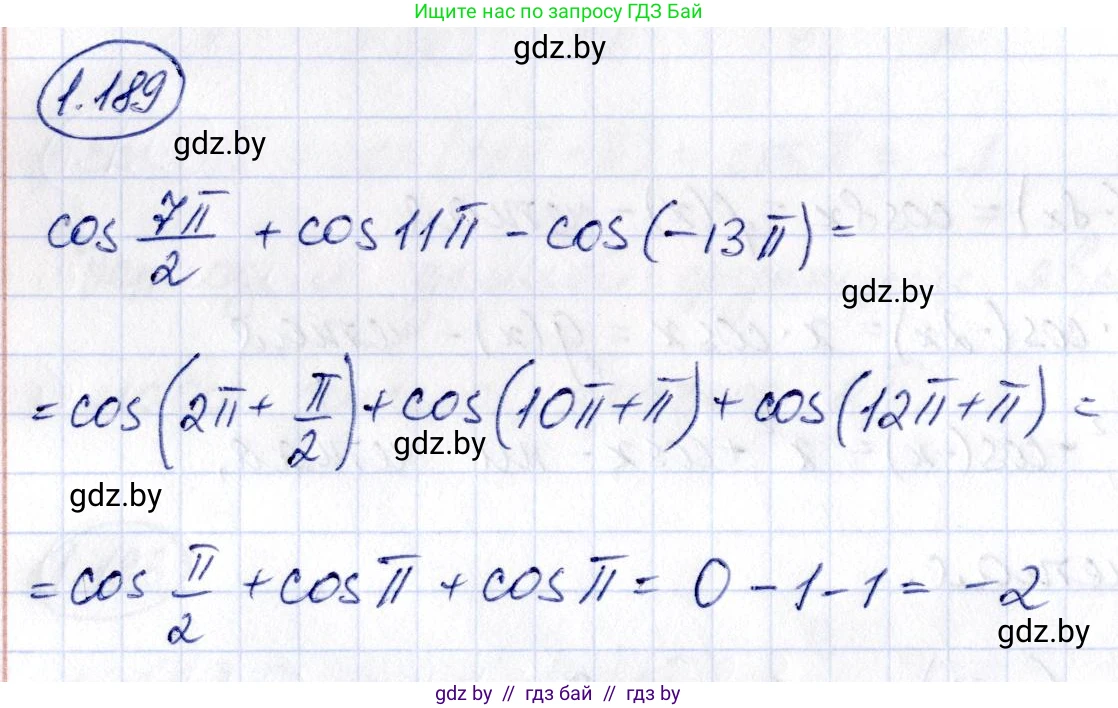 Ищите нас по запросу ГДЗ Бай
gdz.by
1.189
gdz.by
cos 7π/2 + cos 11π - cos(-13π) =
gdz.by
= cos(2π + π/2) + cos(10π + π) + cos(12π + π) =
gdz.by
gdz.by
= cos π/2 + cos π + cos π = 0 - 1 - 1 = -2
gdz.by
gdz.by // гдз бай // гдз by